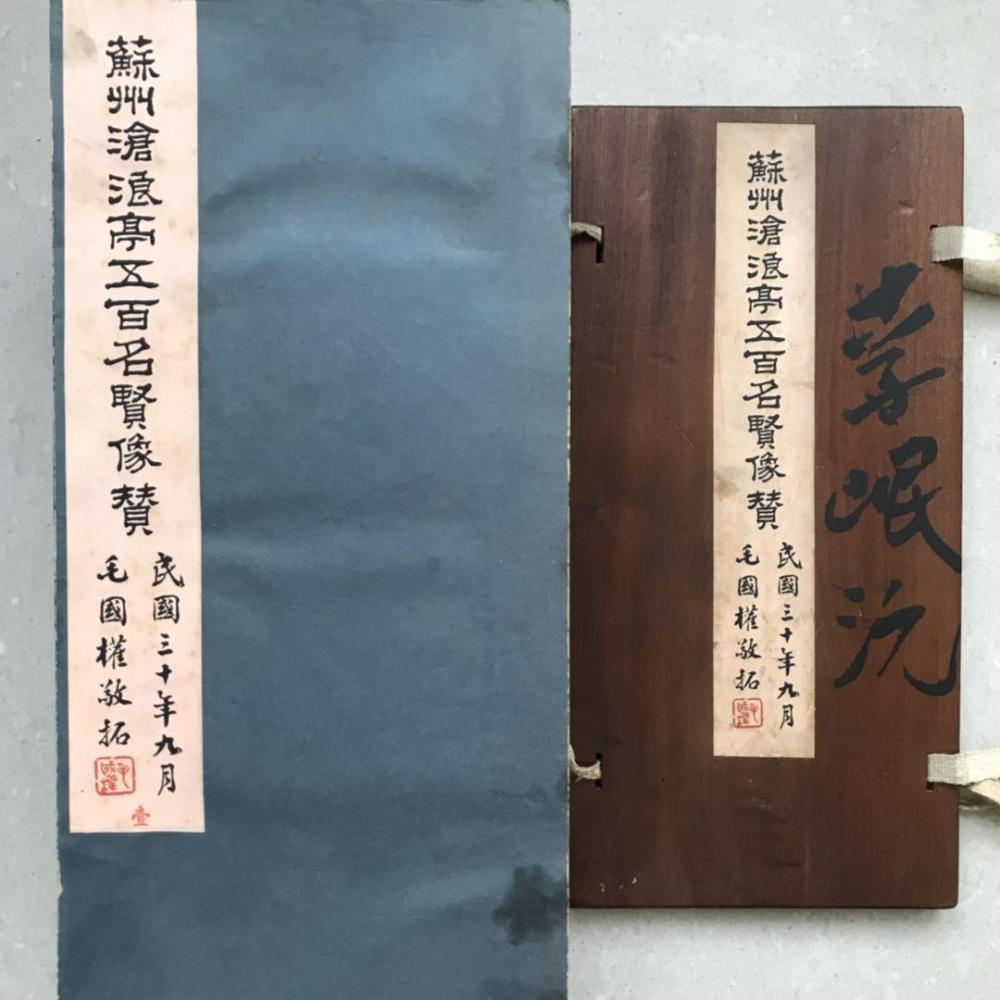 蘇州滄浪亭五百名賢像賛
民國三十年九月
毛國權敬拓
壹
蘇州滄浪亭五百名賢像賛
民國三十年九月
毛國權敬拓